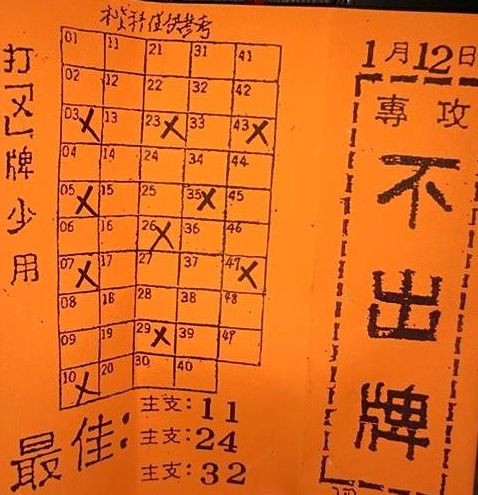 本資料僅供参考
打「X」牌少用
01 11 21 31 41
02 12 22 32 42
03 X 13 23 X 33 43 X
04 14 24 34 44
05 X 15 25 35 X 45
06 16 26 X 36 46
07 X 17 27 37 47 X
08 18 28 38 48
09 19 29 X 39 49
10 X 20 30 40
最佳:
主支:11
主支:24
主支:32
1月12日
專攻
不出牌